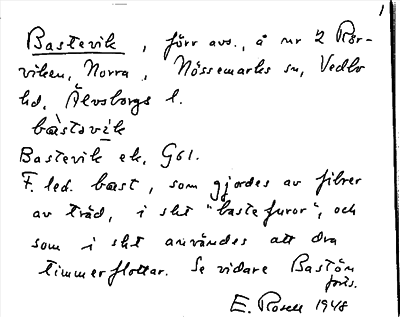 1
Bastevik, förr avs., å nr 2 Rör-
viken, Norra, Nössemarks sn, Vedbo
hd, Älvsborgs l.
bàstəvìk
Bastevik ek. G61.
F. led. bast, som gjordes av fibrer
av träd, i skt "bastefuror", och
som i skt användes att dra
timmerflottar. Se vidare Bastön
forts.
E. Rosell 1948